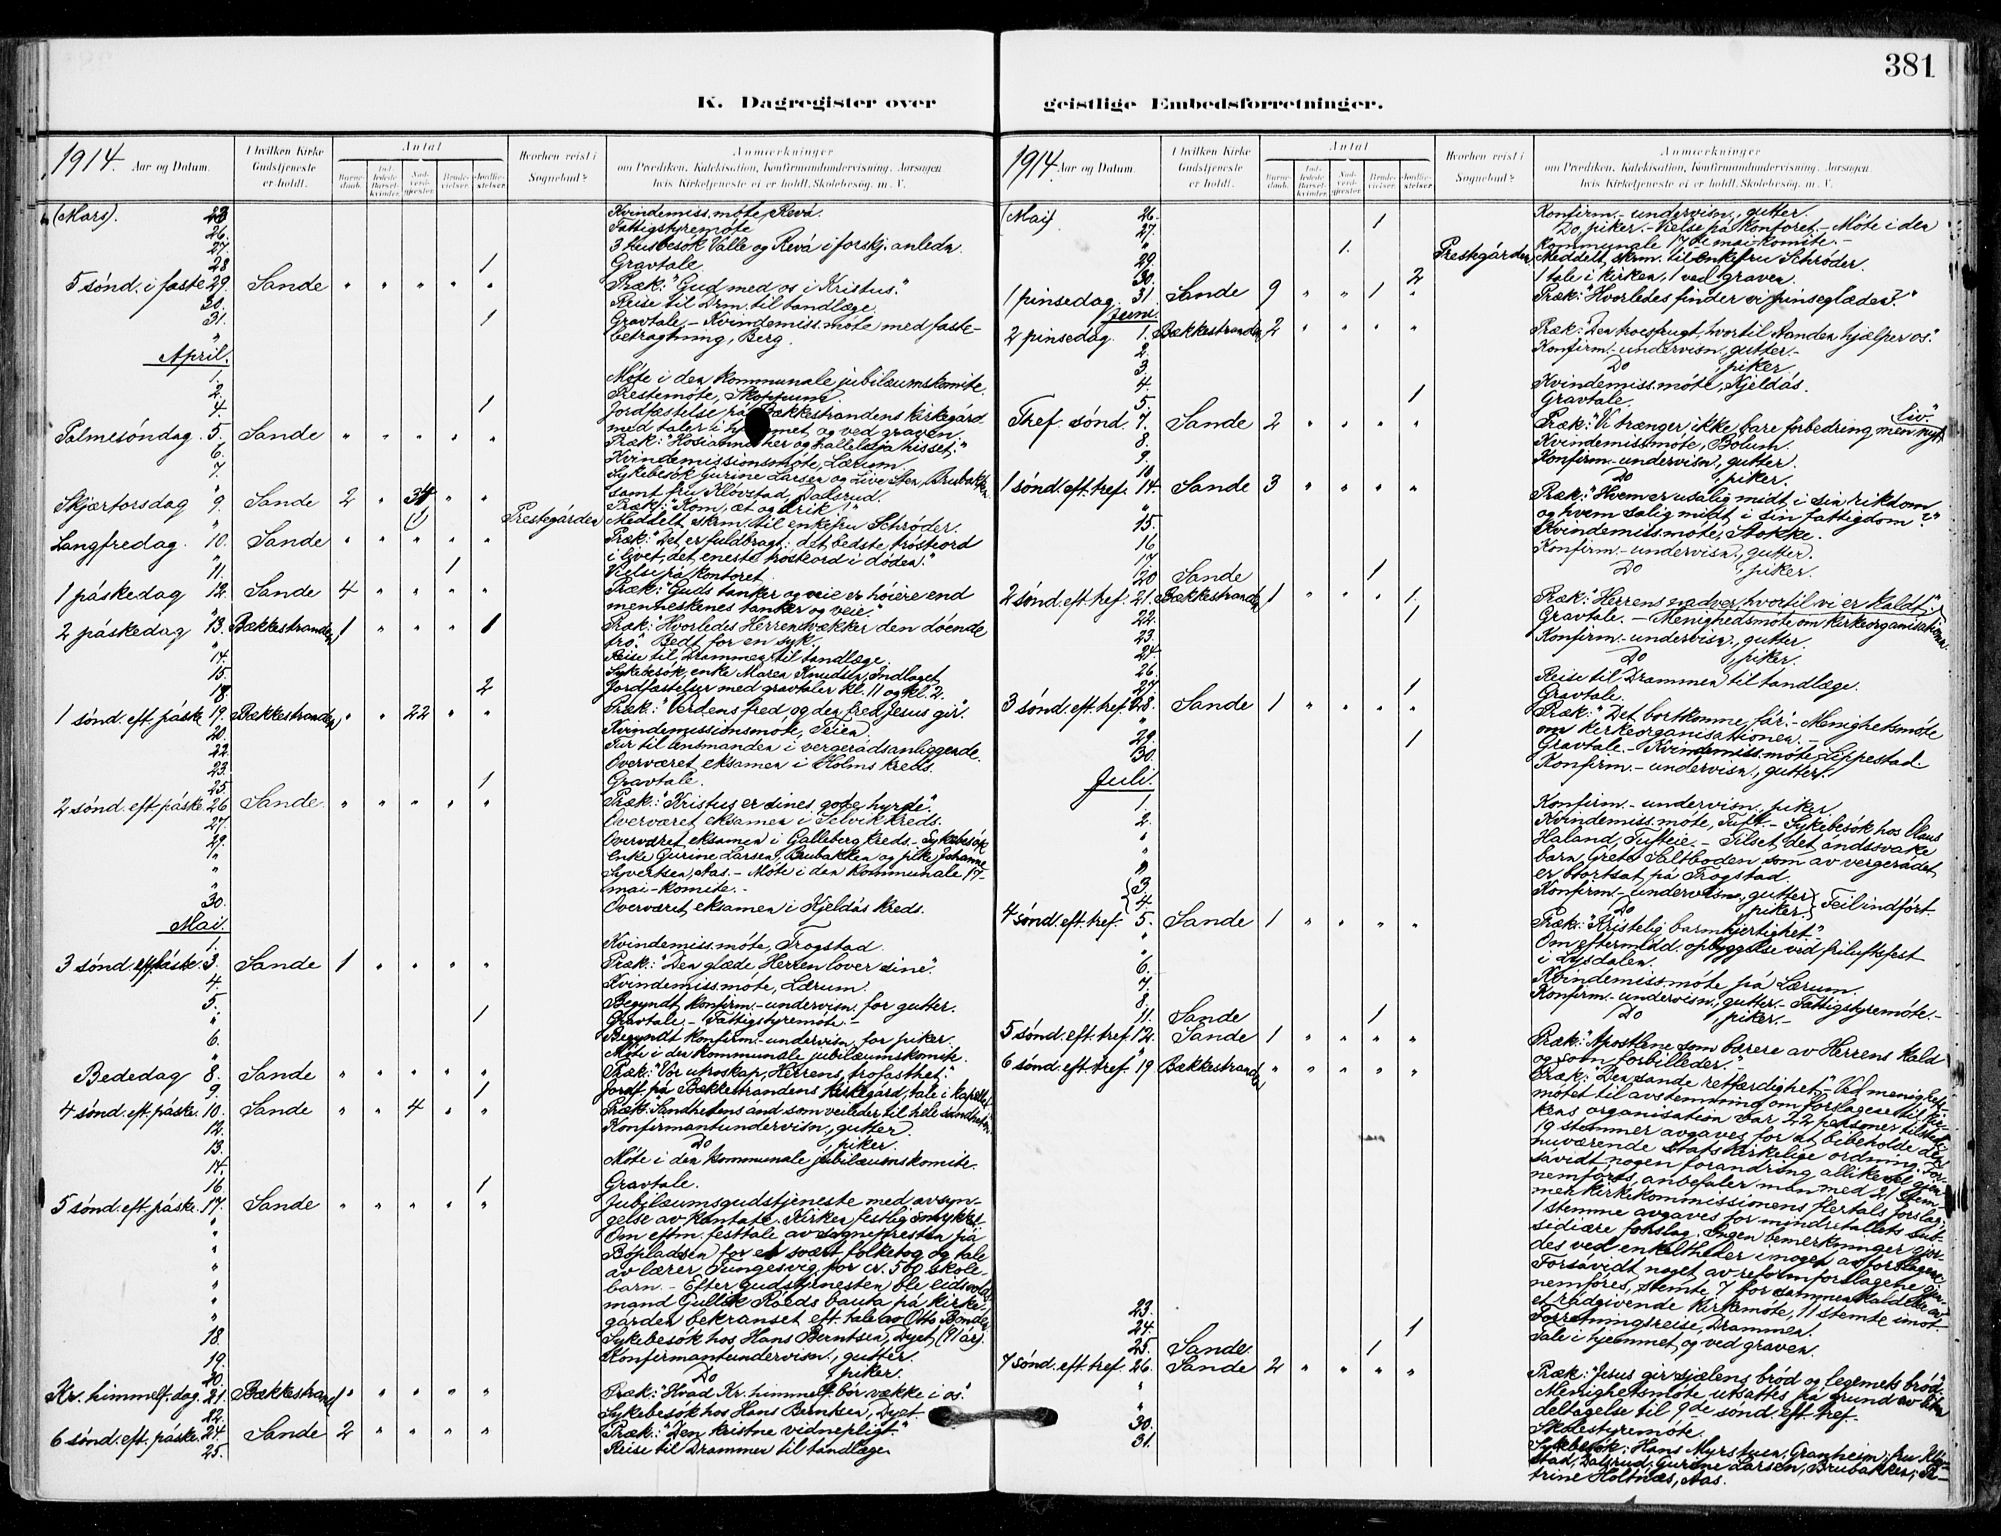 381
K. Dagregister over
1914. Aar og Datum.
I hvilken Kirke Gudstjeneste er holdt.
Antal
Hvorhen reist i Sognebud?
Anmærkninger
om Prædiken, Katekisation, Konfirmandundervisning, Aarsagen
hvis Kirketjeneste ei er holdt, Skolebesøg m. V.
(Mars). 23. Kvindemiss.møte, Revå.
26. Fattigstyremøte
27. 3 husbesøk Valle og Revå i forskj. anledn.
28 1 Gravtale.
5 sønd. i faste 29. Sande " " " " " Præk: "Gud med os i Kristus."
30. Reise til Drm. til tandlæge.
31. 1 Gravtale. – Kvindemiss.møte med faste-
" betragtning, Berg.
April.
1. Møte i den kommunale jubilæumskomite.
2. Prestemøte, Skoppum.
4. 1 Jordfæstelse på Bækkestrandens kirkegård
med taler i hjemmet og ved graven.
Palmesøndag 5. Sande " " " " " Præk: "Hosianna her og halleluja hisset."
6. Kvindemissionsmøte, Lærum.
7. Sykebesøk Gurine Larsen og Live Sten, Brubakken
" samt fru Kløvstad, Dalsrud.
Skjærtorsdag 9. Sande 2 " 34 " " Præk: "Kom, æt og drik!"
" (1) Prestegården Meddelt skrm. til enkefru Schrøder.
Langfredag. 10. Sande " " " " " Præk: "Det er fuldbragt: det bedste trøsteord
" i livet, det eneste trøsteord i døden."
11. 1 Vielse på kontoret.
1 påskedag 12. Sande 4 " " " " Præk: "Guds tanker og veie er høiere end
" menneskenes tanker og veie"
2 påskedag 13. Bækkestranden 1 " " " 1 Præk: "Hvorledes Herren vækker den døende
" tro." Bedt for en syk.
14. Reise til Drammen til tandlæge.
15. Sykebesøk, enke Maren Knudsen, Indlaget
18. 2 Jordfæstelser med gravtaler kl. 11 og kl. 2.
1 sønd. eft. påske 19. Bækkestranden " " 22 " " Præk: "Verdens fred, og den fred Jesus gir".
20. Kvindemissionsmøte, Teien.
22. Tur til lensmanden i vergerådsanliggende.
23. Overværet eksamen i Holms kreds.
25. 1 Gravtale.
2 sønd. eft. påske 26 Sande. " " " " " Præk: "Kristus er sines gode hyrde".
27. Overværet eksamen i Selvik kreds.
29. Overværet eksamen i Galleberg kreds. – Sykebesøk
" enke Gurine Larsen, Brubakken og pike Johanne
" Syvertsen, Aas. – Møte i den kommunale 17-
" mai-komite. –
30. Overværet eksamen i Kjeldås kreds.
Mai.
1. Kvindemiss.møte, Trogstad.
3 sønd. eft. påske 3. Sande 1 " " " " Præk: "Den glæde Herren lover sine".
4. Kvindemiss.møte, Lærum.
5. Begyndt konfirm.-undervisn. for gutter.
" 1 Gravtale. – Fattigstyremøte. –
6. Begyndt konfirm.-undervisn. for piker.
" Møte i den kommunale jubilæumskomite.
Bededag 8. Sande " " " " " Præk: "Vor utroskap, Herrens trofasthet."
9. 1 Jordf. på Bækkestrandens kirkegård, tale i kapellet
4 sønd. eft. påske 10. Sande " " 4 " " Præk: "Sandhetens ånd som veileder til hele sandheten."
12. Konfirmantundervisn., gutter.
13. Do , piker.
14. Møte i den kommunale jubilæumskomite.
16. 1 Gravtale.
5 sønd. eft. påske. 17. Sande " " " " " Jubilæumsgudstjeneste med avsyn-
" gelse av kantate. Kirken festlig smykket.
" Om eftm. festtale av sognepresten på
" Bøpladsen for et svært folketog og tale
" av lærer Tungesvig for cr. 500 skole-
" barn. – Efter gudstjenesten ble eidsvolds-
" mand Gulliik Røeds bauta på kirke-
" gården bekranset eft. tale av Otto Bonden
18. Sykebesøk hos Hans Berntsen, Dyet (91 år).
19. Konfirmantundervisn., gutter.
20. Do , piker.
Kr. himmelf.dag. 21. Bækkestrand 1 " " " " Præk: "Hvad Kr. himmelf. bør vække i os."
22. Sykebesøk hos Hans Berntsen, Dyet.
6 sønd. eft. påske. 24. Sande 2 " " " " Præk: "Den kristne vidnepligt."
25. Reise til Drammen til tandlæge
geistlige Embedsforretninger.
1914. Aar og Datum.
I hvilken Kirke Gudstjeneste er holdt.
Antal
Hvorhen reist i Sognebud?
Anmærkninger
om Prædiken, Katekisation, Konfirmandundervisning, Aarsagen
hvis Kirketjeneste ei er holdt, Skolebesøg m. V.
(Mai). 26. Konfirm.-undervisn., gutter.
27. 1 Do, piker. – Vielse på kontoret. – Møte i den
" kommunale 17de mai komite. –
29. 1. Prestegården Meddelt skrm. til enkefru Schrøder.
30. 2 1 tale i kirken, 1 ved graven.
1 pinsedag. 31. Sande 9 " " 1 " Præk: "Hvorledes finder vi pinseglæden?"
Juni.
2 pinsedag. 1. Bækkestranden 2 " " " " Præk: "Den troesfrugt, hvortil Aanden hjælper os."
2. Konfirm.-undervisn., gutter. –
3. Do , piker.
4. Kvindemiss.møte, Kjeldås.
5. 1 Gravtale.
Tref. sønd. 7. Sande 2 " " " " Præk: "Vi trænger ikke bare forbedring, men nyt liv."
8. Kvindemiss.møte, Bolum.
9. Konfirm.-undervisn., gutter.
10 Do , piker.
1 sønd. eft. tref. 14. Sande 3 " " " " Præk: "Hvem er usalig midt i sin rikdom
" og hvem salig midt i sin fattigdom?"
15. Kvindemiss.møte, Stokke.
16 Konfirm.-undervisn., gutter.
17. Do , piker.
20 Sande 1
2 sønd. eft. tref. 21. Bækkestranden 1 " " " 1. Præk: "Herrens nadver, hvortil vi er kaldt".
22. 1 Gravtale. – Menighedsmøte om kirkeorganisationen.
23. Konfirm.-undervisn., gutter.
24 Do , piker.
26. Reise til Drammen til tandlæge.
27. 1 Gravtale.
3 sønd. eft. tref. 28. Sande 1 " " " " Præk: "Det bortkomne får." – Menighetsmøte
" om kirkeorganisationen. –
29. 1 Gravtale. – Kvindemiss.møte, Lippestad.
30. Konfirm.-undervisn., gutter.
Juli.
1. Konfirm.-undervisn., piker.
2. Kvindemiss.møte, Tuft. – Sykebesøk hos Olaus
" Haland, Tufteie. – Tilset det åndssvake
" barn, Grete Saltboden som av vergerådet
" er bortsat på Trogstad.
3. Konfirm.-undervisn., gutter
4. Do , piker. } Feil indført.
4 sønd. eft. tref. 5. Sande 1 " " " " Præk: "Kristelig barmhjertighet."
" Om eftermidd. opbyggelse ved friluftsfest
" i Lysdalen.
6. Kvindemiss.møte på Lærum.
7. Konfirm.-undervisn., gutter. – Fattigstyremøte. –
8. Do , piker. –
11. Sande 1
5 sønd. eft. tref. 12. Sande 1 " " " " Præk: "Apostlene som bærere av Herrens kald
" og som forbilleder."
6 sønd. eft. tref. 19 Bækkestranden " " " " " Præk: "Den sande retfærdighet". – Ved menighets-
møtet til avstemning om forslagene til kir-
kens organisation var 22 personer tilstede.
19 stemmer avgaves for at bibeholde den
nuværende statskirkelige ordning. For-
såvidt nogen forandring allikevel gjen-
nemføres, anbefaler man med 21 stem-
mer kirkekommissionens flertals forslag;
1 stemme avgaves for mindretallets sub-
sidiære forslag. Ingen bemerkninger gjor-
des ved enkeltheder i noget av forslagene
Forsåvidt noget av reformforslagene gjen-
nemføres, stemte 7 for sammenkaldelse av
et rådgivende kirkemøte, 11 stemte imot.
23. Forretningsreise, Drammen.
24. 1 Tale i hjemmet og ved graven.
25. Sande. 1
7 sønd. eft. tref. 26. Sande 2 " " " " Præk: "Jesus gir sjælens brød og legemets brød".
" Menighetsmøte utsattes på grund av liten
" deltagelse til 9de sønd. eft. tref.
30. Skolestyremøte.
31. Sykebesøk: Hans Myrstuen, Granheim; fru Klø-
stad, Dalsrud; Gurine Larsen, Brubakken;
trine Holtnæs, Aas.